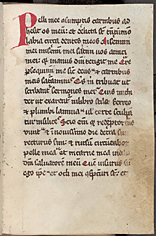 Pelli mee asumptis carnibus ad
hesit os meum: et derelicta sunt tantummodo
labia circa dentes meos Miseremini
mei miseremini mei saltem uos amici
mei: quia manus domini tetigit me Quare
persequimini me sicut deus: et carnibus
meis saturamini Quis mihi tribuat ut
scribantur sermones mei Quis mihi
det ut exarentur in libro stilo ferreo
et plumbi lamina: uel certe sculpan
tur in silice Scio enim quod redemptor meus
uiuit: et in nouissimo die de terra sur
recturus sum: et rursum circumdabor
pelle mea et in carne mea uidebo
deum saluatorem meum Quem uisurus sum
ego ipse: et oculi mei conspecturi sunt: